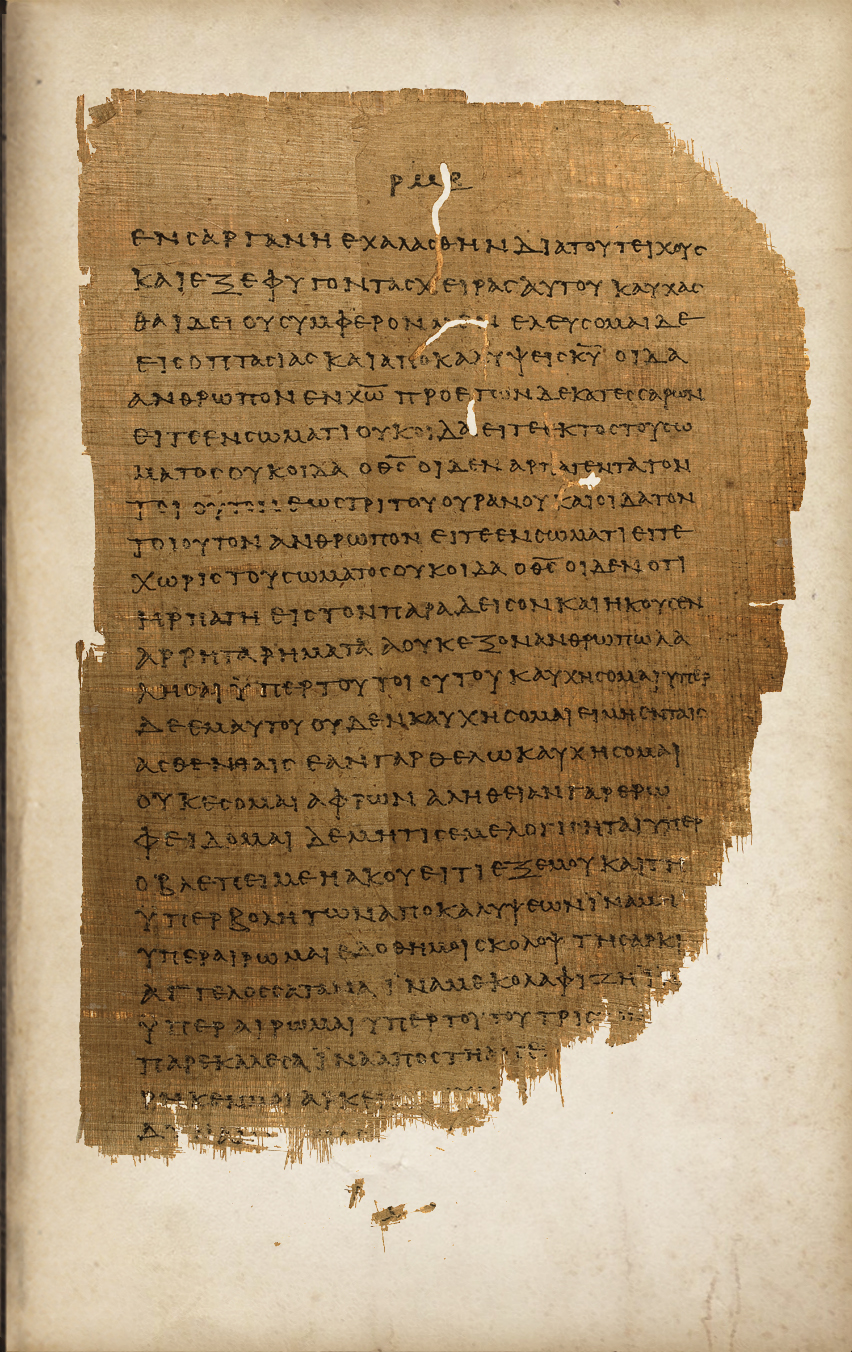 ΕΝ ϹΑΡΓΑΝΗ ΕΧΑΛΑϹΘΗΝ ΔΙΑ ΤΟΥ ΤΕΙΧΟΥϹ
ΚΑΙ ΕΞΕΦΥΓΟΝ ΤΑϹ ΧΕΙΡΑϹ ΑΥΤΟΥ ΚΑΥΧΑϹ
ΘΑΙ ΔΕΙ ΟΥ ϹΥΜΦΕΡΟΝ ΕΛΕΥϹΟΜΑΙ ΔΕ
ΕΙϹ ΟΠΤΑϹΙΑϹ ΚΑΙ ΑΠΟΚΑΛΥΨΕΙϹ Κ̅Υ̅ ΟΙΔΑ
ΑΝΘΡΩΠΟΝ ΕΝ Χ̅Ω̅ ΠΡΟ ΕΤΩΝ ΔΕΚΑΤΕϹϹΑΡΩΝ
ΕΙΤΕ ΕΝ ϹΩΜΑΤΙ ΟΥΚ ΟΙΔΑ ΕΙΤΕ ΕΚΤΟϹ ΤΟΥ ϹΩ
ΜΑΤΟϹ ΟΥΚ ΟΙΔΑ Ο Θ̅Ϲ̅ ΟΙΔΕΝ ΑΡΠΑΓΕΝΤΑ ΤΟΝ
ΤΟΙΟΥΤΟΝ ΕΩϹ ΤΡΙΤΟΥ ΟΥΡΑΝΟΥ ΚΑΙ ΟΙΔΑ ΤΟΝ
ΤΟΙΟΥΤΟΝ ΑΝΘΡΩΠΟΝ ΕΙΤΕ ΕΝ ϹΩΜΑΤΙ ΕΙΤΕ
ΧΩΡΙϹ ΤΟΥ ϹΩΜΑΤΟϹ ΟΥΚ ΟΙΔΑ Ο Θ̅Ϲ̅ ΟΙΔΕΝ ΟΤΙ
ΗΡΠΑΓΗ ΕΙϹ ΤΟΝ ΠΑΡΑΔΕΙϹΟΝ ΚΑΙ ΗΚΟΥϹΕΝ
ΑΡΡΗΤΑ ΡΗΜΑΤΑ Α ΟΥΚ ΕΞΟΝ ΑΝΘΡΩΠΩ ΛΑ
ΛΗϹΑΙ ΫΠΕΡ ΤΟΥ ΤΟΙΟΥΤΟΥ ΚΑΥΧΗϹΟΜΑΙ ΥΠΕΡ
ΔΕ ΕΜΑΥΤΟΥ ΟΥΔΕΝ ΚΑΥΧΗϹΟΜΑΙ ΕΙ ΜΗ ΕΝ ΤΑΙϹ
ΑϹΘΕΝΙΑΙϹ ΕΑΝ ΓΑΡ ΘΕΛΩ ΚΑΥΧΗϹΟΜΑΙ
ΟΥΚ ΕϹΟΜΑΙ ΑΦΡΩΝ ΑΛΗΘΕΙΑΝ ΓΑΡ ΕΡΩ
ΦΕΙΔΟΜΑΙ ΔΕ ΜΗ ΤΙϹ ΕΜΕ ΛΟΓΙϹΗΤΑΙ ΥΠΕΡ
Ο ΒΛΕΠΕΙ ΜΕ Η ΑΚΟΥΕΙ ΤΙ ΕΞ ΕΜΟΥ ΚΑΙ ΤΗ
ΫΠΕΡΒΟΛΗ ΤΩΝ ΑΠΟΚΑΛΥΨΕΩΝ ΪΝΑ ΜΗ
ΥΠΕΡΑΙΡΩΜΑΙ ΕΔΟΘΗ ΜΟΙ ϹΚΟΛΟΨ ΤΗ ϹΑΡΚΙ
ΑΓΓΕΛΟϹ ϹΑΤΑΝΑ ΪΝΑ ΜΕ ΚΟΛΑΦΙΖΗ
ΥΠΕΡΑΙΡΩΜΑΙ ΥΠΕΡ ΤΟΥΤΟΥ ΤΡΙϹ
ΠΑΡΕΚΑΛΕϹΑ ΪΝΑ ΑΠΟϹΤΗ
ΑΡΚΕΙ